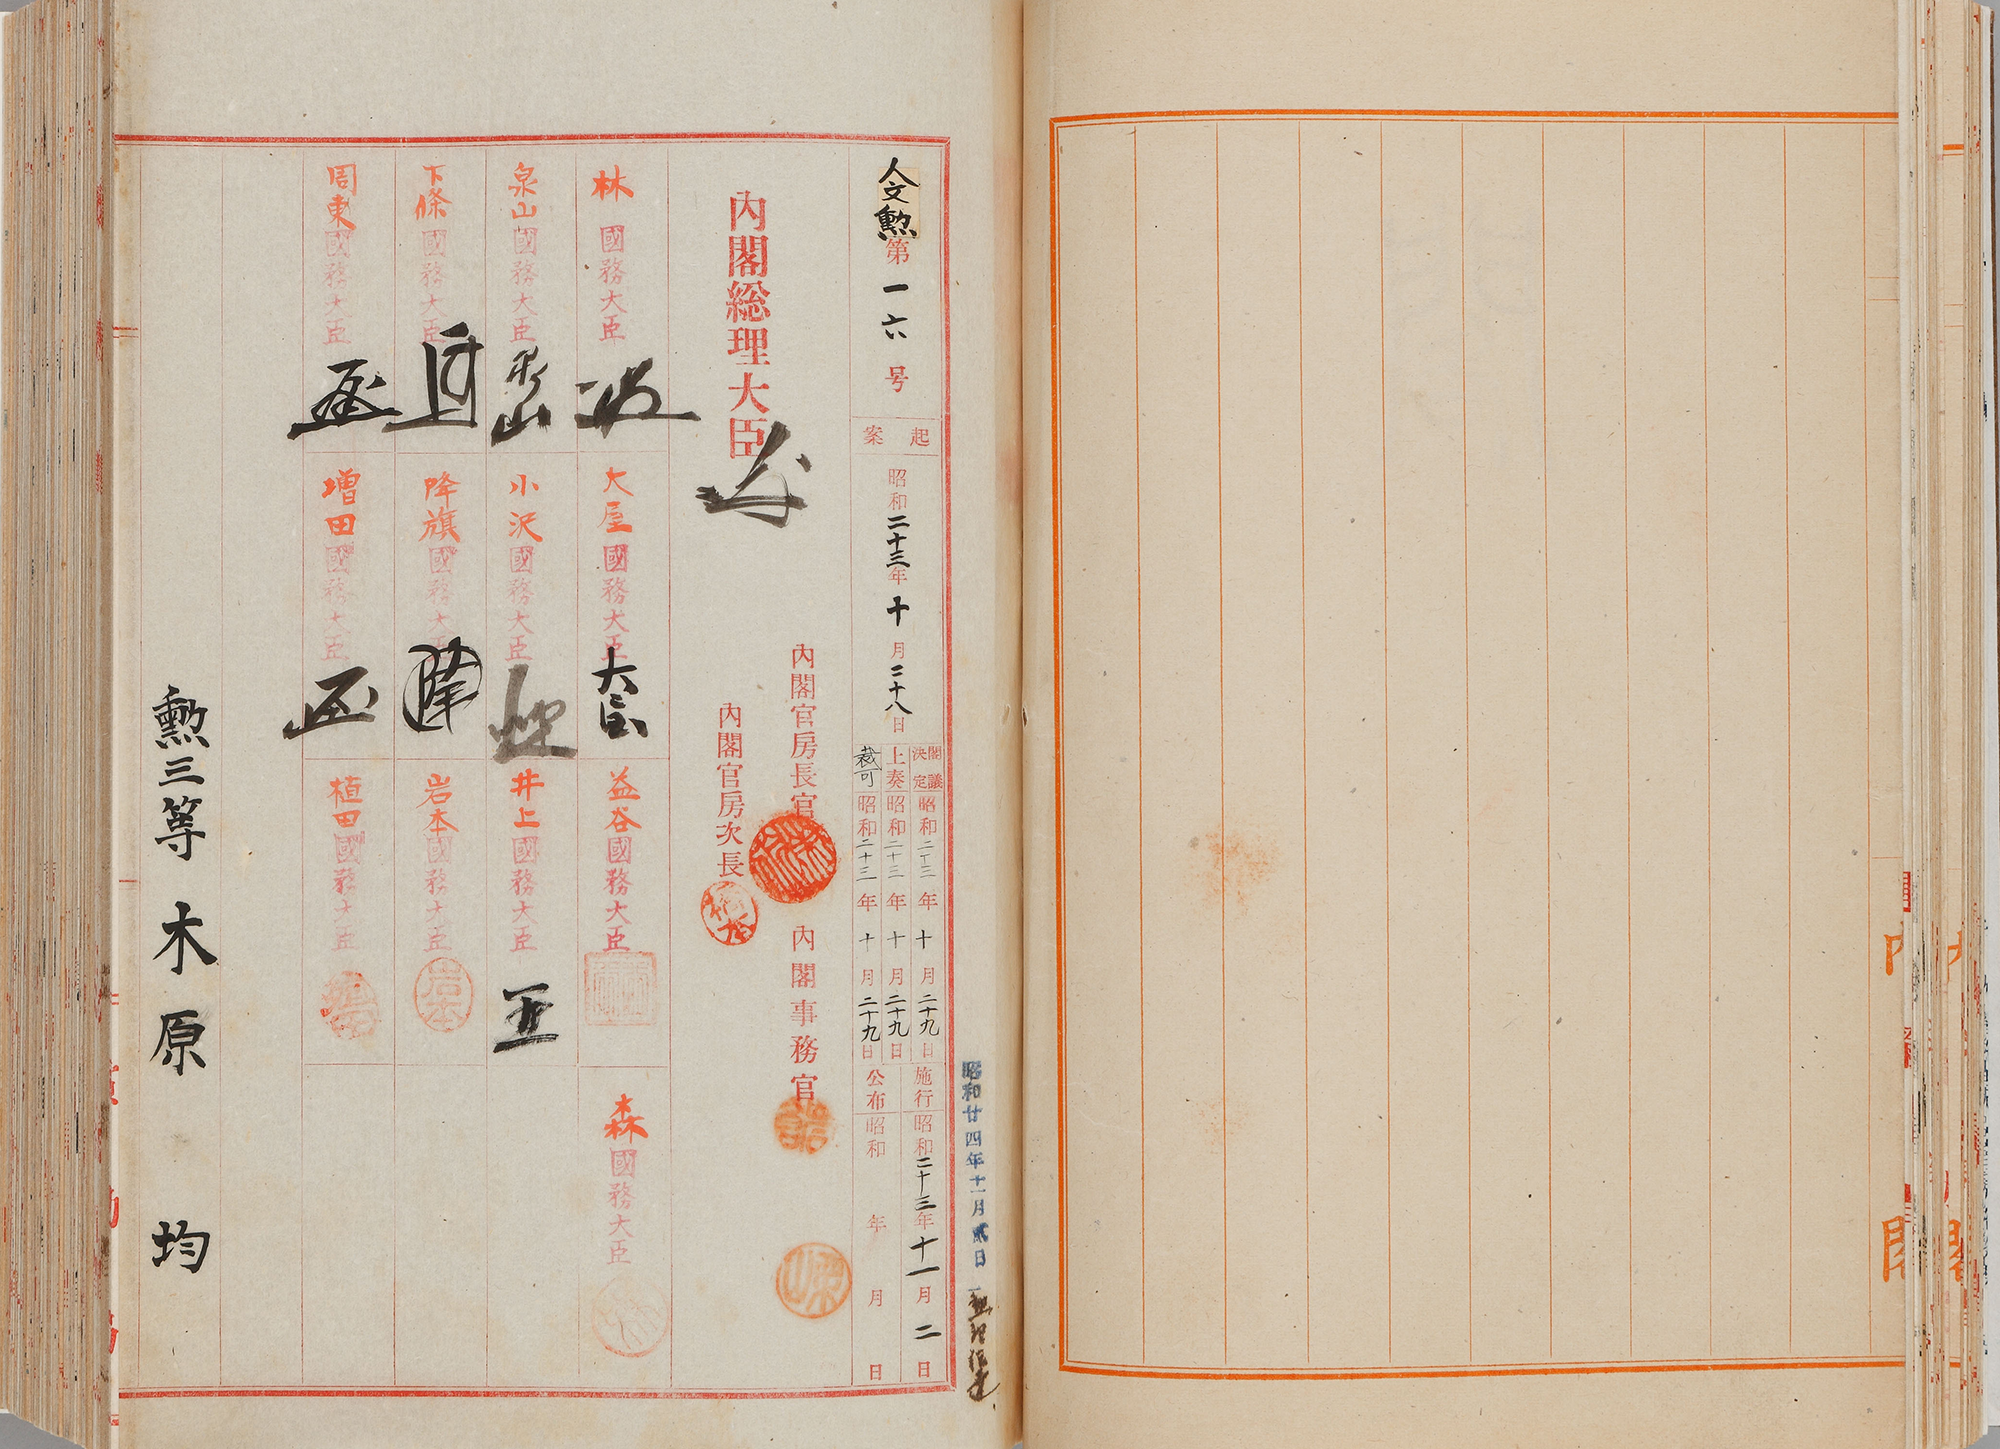 人文勲第一六号
起案
昭和二十三年十月二十八日
閣議決定 昭和二十三年十月二十九日
上奏 昭和二十三年十月二十九日
裁可 昭和二十三年十月二十九日
施行 昭和二十三年十一月二日
公布 昭和 年 月 日
昭和廿四年十一月貳日
内閣総理大臣
内閣官房長官
内閣事務官
内閣官房次長
林國務大臣
大屋國務大臣
大屋
益谷國務大臣
森國務大臣
泉山國務大臣
泉山
小沢國務大臣
井上國務大臣
下條國務大臣
降旗國務大臣
降
岩本國務大臣
岩本
周東國務大臣
增田國務大臣
植田國務大臣
勲三等 木原 均